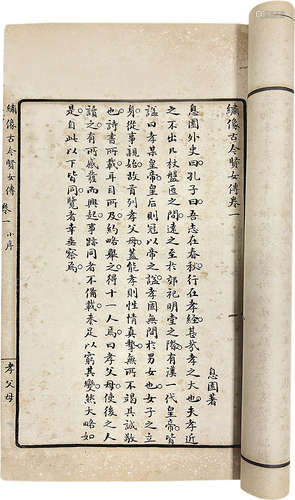 繡像古今賢女傳卷一
息園著
息園外史曰孔子曰吾志在春秋行在孝經甚哉孝之大也夫孝近
之不出几杖盤匜之間遠之至於郊祀明堂之隆有漢一代皇帝皆
諡曰孝某皇帝皇后則冠以帝之諡孝固無間於男女也女子之立
身從事親始故首列孝父母蓋能孝則性情真摯無所不竭其誠敬
也詩書所載耳目所及約略舉之得十一人焉曰孝父母使後之人
讀之有所感發而興起事跡同者不備載未足以窮其變然大略如
是自此以下皆同覽者幸垂察焉
繡像古今賢女傳 卷一 小序 孝父母